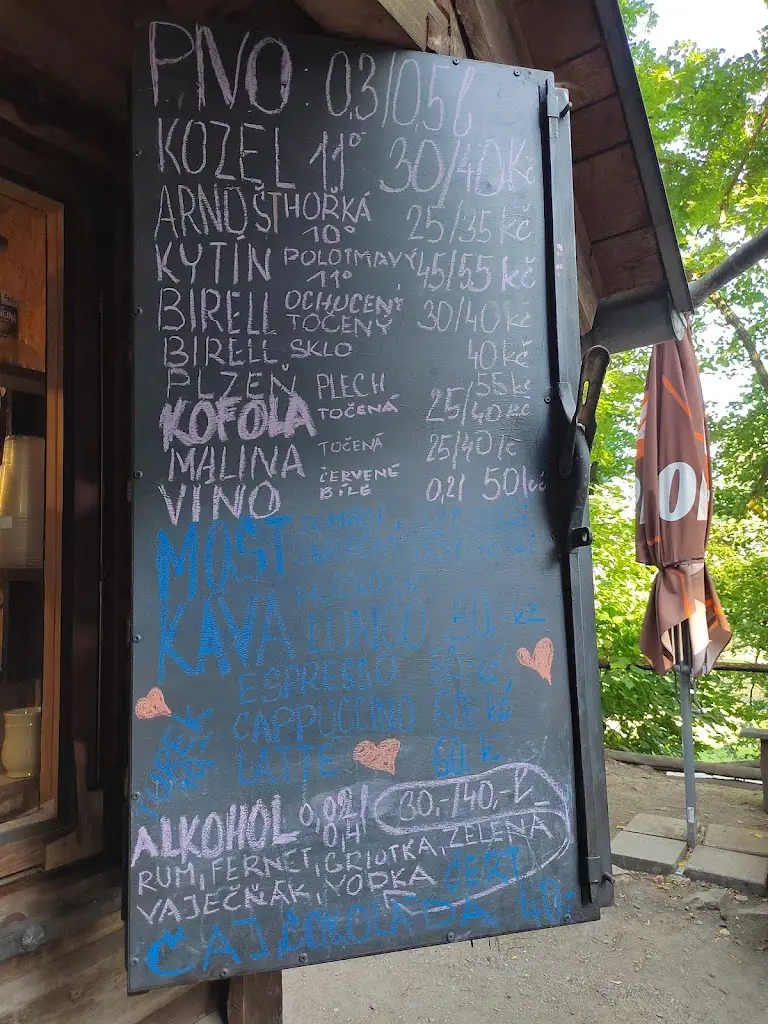 PIVO : 0,3/0,5 l
KOZEL 11° 30/40 Kč
ARNOŠTHOŘKÁ 10° 25/35 kč
KYTÍN POLOTMAVÝ 11° 45/55 kč
BIRELL OCHUCENÝ TOČENÝ 30/40 kč
BIRELL SKLO 40 kč
PLZEŇ PLECH 55 kč
KOFOLA TOČENÁ 25/40 kč
MALINA TOČENÁ 25/40 kč
VÍNO ČERVENÉ BÍLÉ 0,2l 50 kč
MOŠT
KÁVA LUNGO 50 kč
ESPRESSO 50 kč
CAPPUCCINO 60 kč
LATTE 60 kč
TUREK
ALKOHOL 0,02l 0,4l 30,-/40,-
RUM, FERNET, GRIOTKA, ZELENÁ
VAJEČŇÁK, VODKA ČERT
ČAJ ČOKOLÁDA 40,-